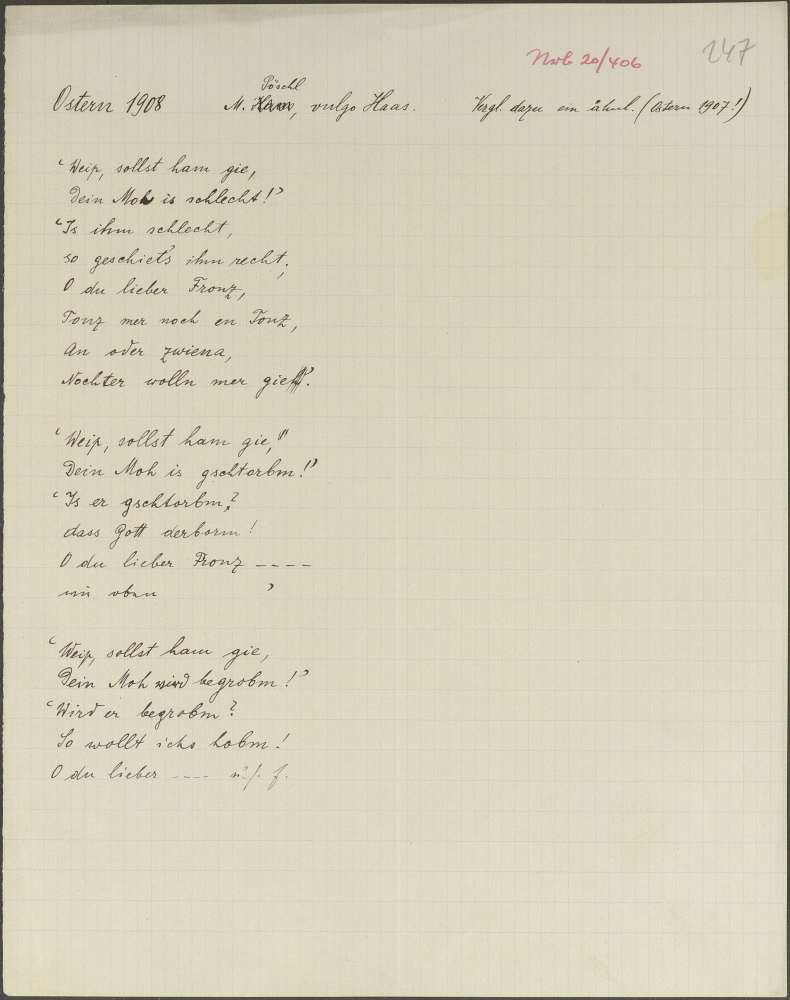 Nrb 20/406 247
Pöschl
Ostern 1908 M. vulgo Haas. Vergl. dazu ein ähnl. (Ostern 1907!)
‘Weip, sollst ham gie,
Dein Moh is schlecht!’
‘Is ihm schlecht,
so geschiet's ihm recht;
O du lieber Fronz,
Tonz mer noch en Tonz,
An oder zwiena,
Nochter wolln mer gieh’.
‘Weip, sollst ham gie,"
Dein Moh is gschtorbm!’
‘Is er gschtorbm?
dass Gott derborm!
O du lieber Fronz ----
wie oben ’
‘Weip, sollst ham gie,
Dein Moh wird begrobm!’
‘Wird er begrobm?
So wollt ichs hobm!
O du lieber ---- u. s. f.